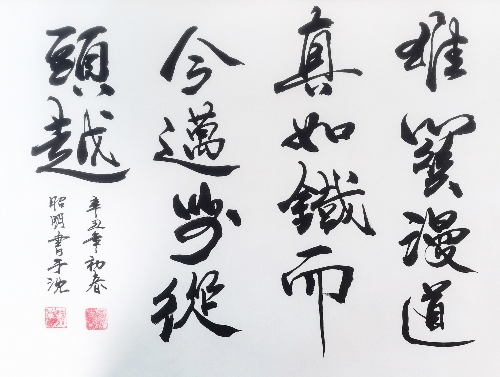 雄關漫道
真如鐵而
今邁步從
頭越
辛丑年初春
昭明書于沈